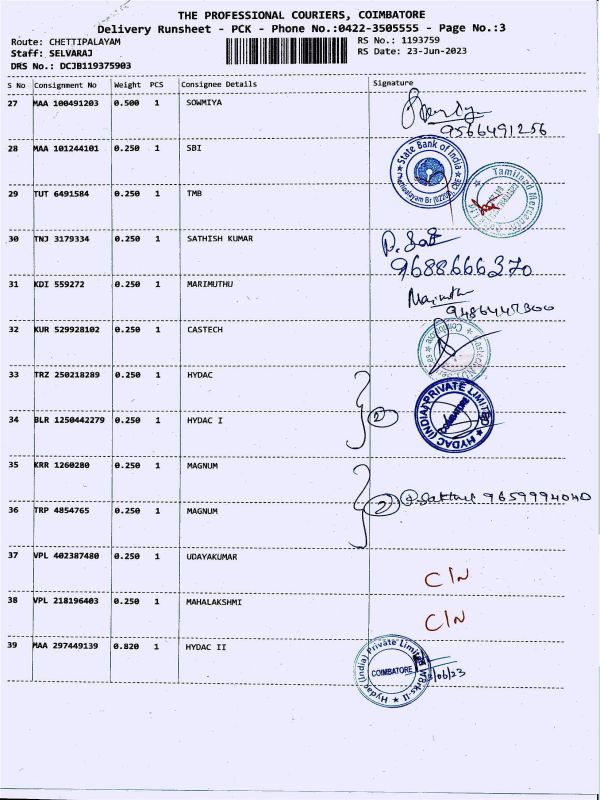 THE PROFESSIONAL COURIERS, COIMBATORE
Delivery Runsheet - PCK - Phone No.:0422-3505555 - Page No.:3
Route: CHETTIPALAYAM
RS No.: 1193759
Staff: SELVARAJ
RS Date: 23-Jun-2023
DRS No.: DCJB119375903
S No Consignment No Weight PCS Consignee Details Signature
27 MAA 100491203 0.500 1 SOWMIYA
9566491256
28 MAA 101244101 0.250 1 SBI
State Bank of India
29 TUT 6491584 0.250 1 TMB
Tamilnad Mercantile
30 TNJ 3179334 0.250 1 SATHISH KUMAR
9688666370
31 KDI 559272 0.250 1 MARIMUTHU
32 KUR 529928102 0.250 1 CASTECH
33 TRZ 250218289 0.250 1 HYDAC
HYDAC (INDIA) PRIVATE LIMITED
COIMBATORE
34 BLR 1250442279 0.250 1 HYDAC I
2
35 KRR 1260280 0.250 1 MAGNUM
2 9659994040
36 TRP 4854765 0.250 1 MAGNUM
37 VPL 402387480 0.250 1 UDAYAKUMAR
C/N
38 VPL 218196403 0.250 1 MAHALAKSHMI
C/N
39 MAA 297449139 0.820 1 HYDAC II
Hydac (India) Private Limited Works-II
COIMBATORE
/06/23